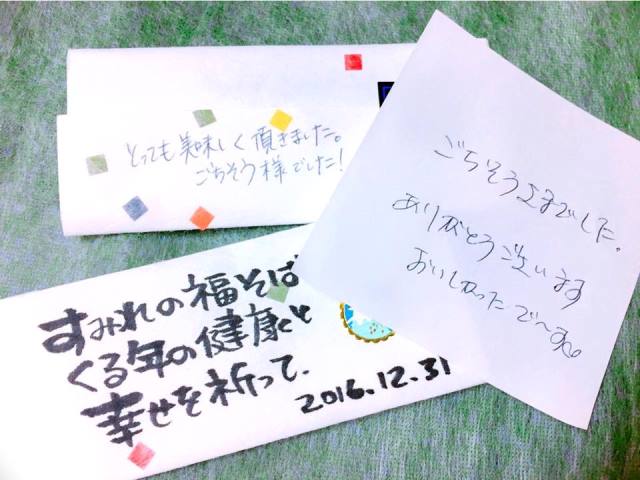 とっても美味しく頂きました。
ごちそう様でした!
ごちそうさまでした。
ありがとうございます
おいしかったで〜す
すみれの福そば
くる年の健康と
幸せを祈って、
2016.12.31